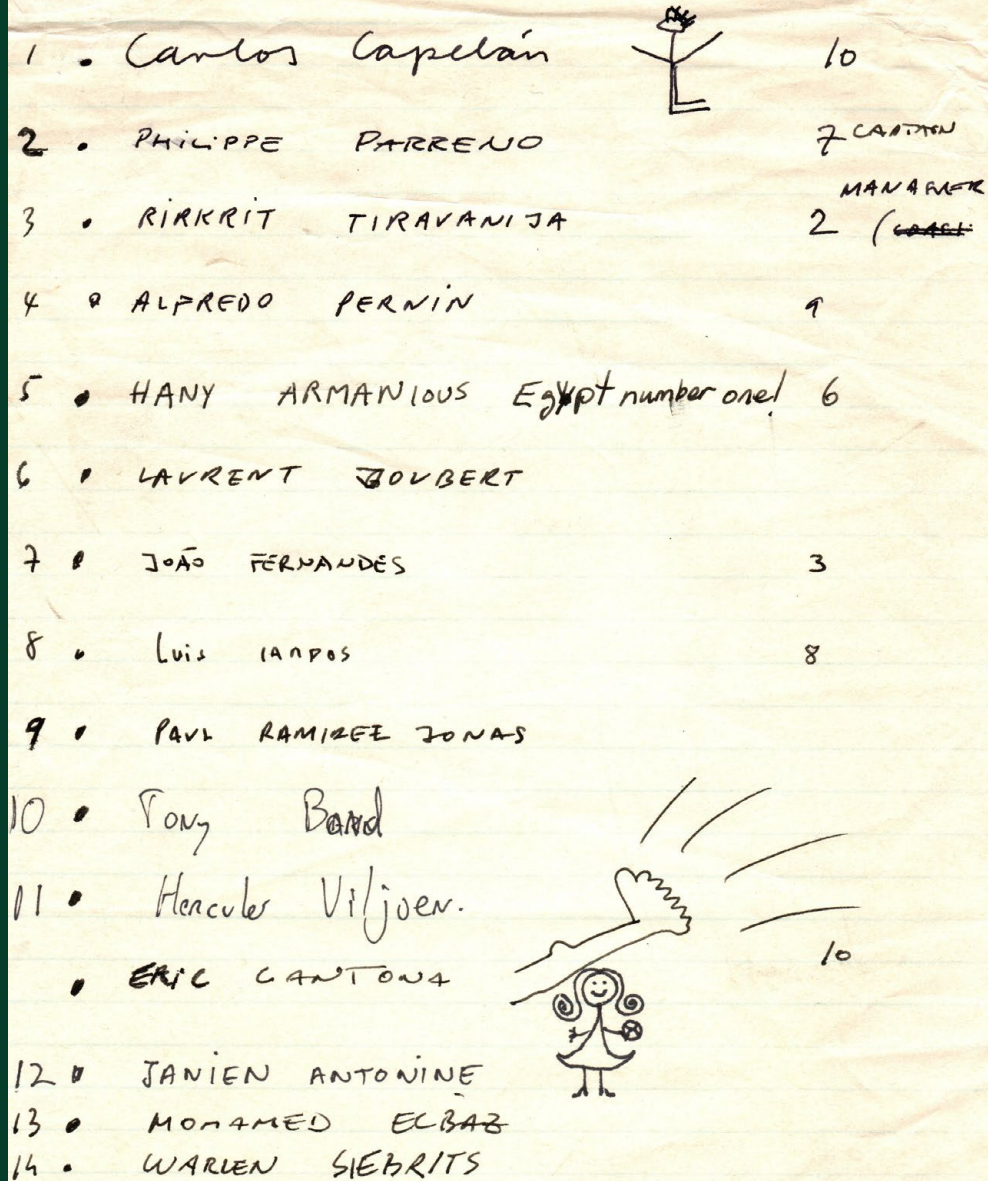 1 . Carlos Capelán 10
2 . PHILIPPE PARRENO 7 CAPTAIN
MANAGER
3 . RIRKRIT TIRAVANIJA 2 (
4 . ALFREDO PERNIN 9
5 . HANY ARMANIOUS Egypt number one! 6
6 . LAURENT JOUBERT
7 . JOÃO FERNANDES 3
8 . Luis CAMPOS 8
9 . PAUL RAMIREZ JONAS
10 . Tony Band
11 . Hercules Viljoen.
. ERIC CANTONA 10
12 . JANIEN ANTONINE
13 . MOHAMED ELBAZ
14 . WARREN SIEBRITS